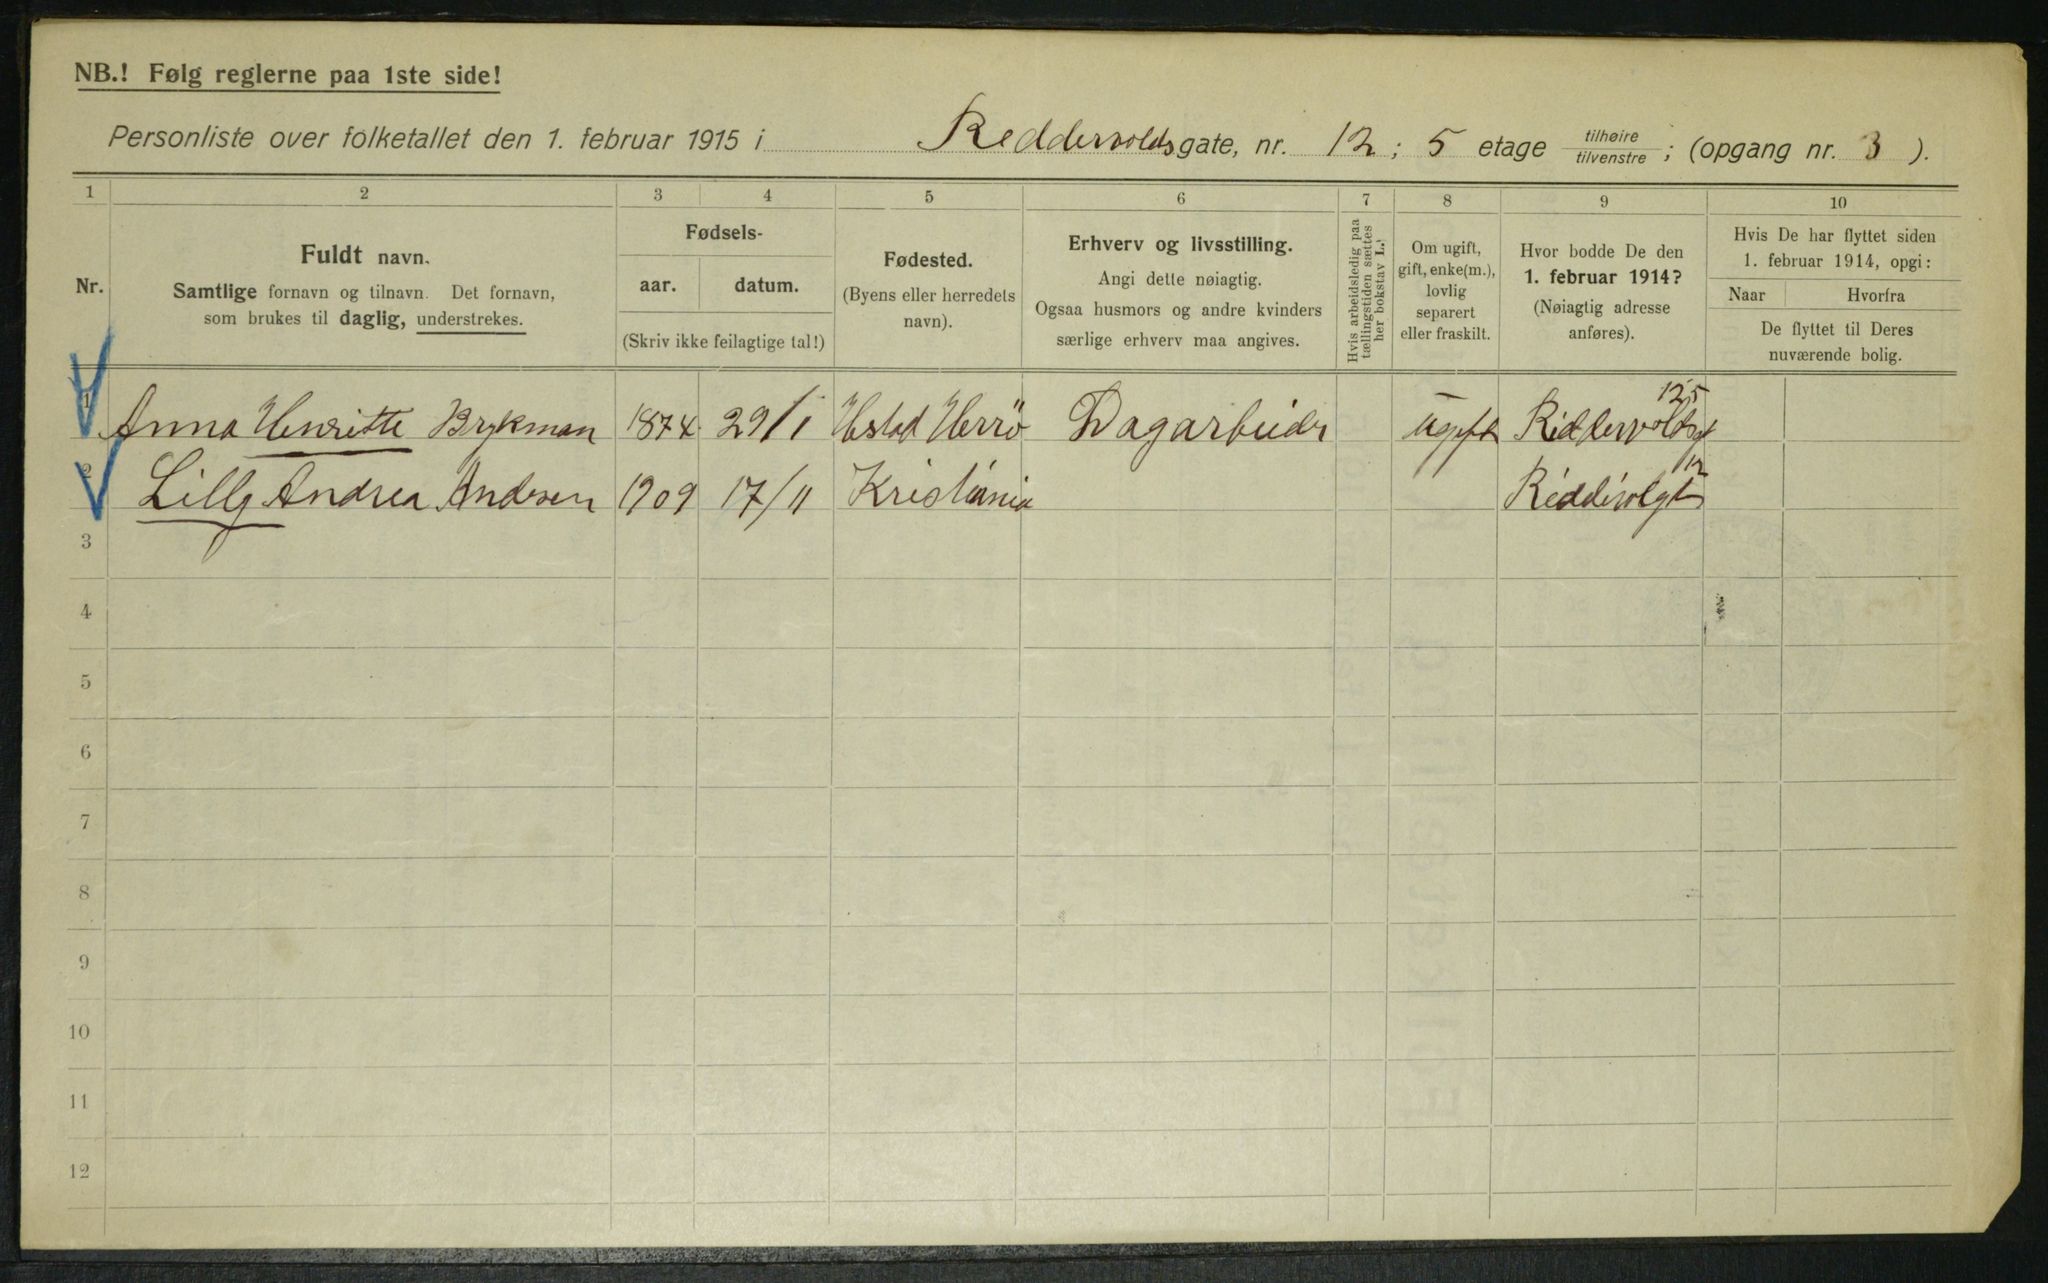 NB.! Følg reglerne paa 1ste side!
Personliste over folketallet den 1. februar 1915 i Reddervoldsgate, nr. 12; 5 etage tilhøire / tilvenstre; (opgang nr. 3).
1 2 3 4 5 6 7 8 9 10
Nr.
Fuldt navn.
Samtlige fornavn og tilnavn. Det fornavn,
som brukes til daglig, understrekes.
Fødsels-
aar. datum.
(Skriv ikke feilagtige tal!)
Fødested.
(Byens eller herredets
navn).
Erhverv og livsstilling.
Angi dette nøiagtig.
Ogsaa husmors og andre kvinders
særlige erhverv maa angives.
Hvis arbeidsledig paa
tællingstiden sættes
her bokstav L.!
Om ugift,
gift, enke(m.),
lovlig
separert
eller fraskilt.
Hvor bodde De den
1. februar 1914?
(Nøiagtig adresse
anføres).
Hvis De har flyttet siden
1. februar 1914, opgi:
Naar Hvorfra
De flyttet til Deres
nuværende bolig.
1 Anna Henriette Brykman 1874 29/1 Dagarbeider ugift Riddervoldsgt 12
2 Lilly Andrea Andersen 1909 17/11 Kristiania 12
3
4
5
6
7
8
9
10
11
12